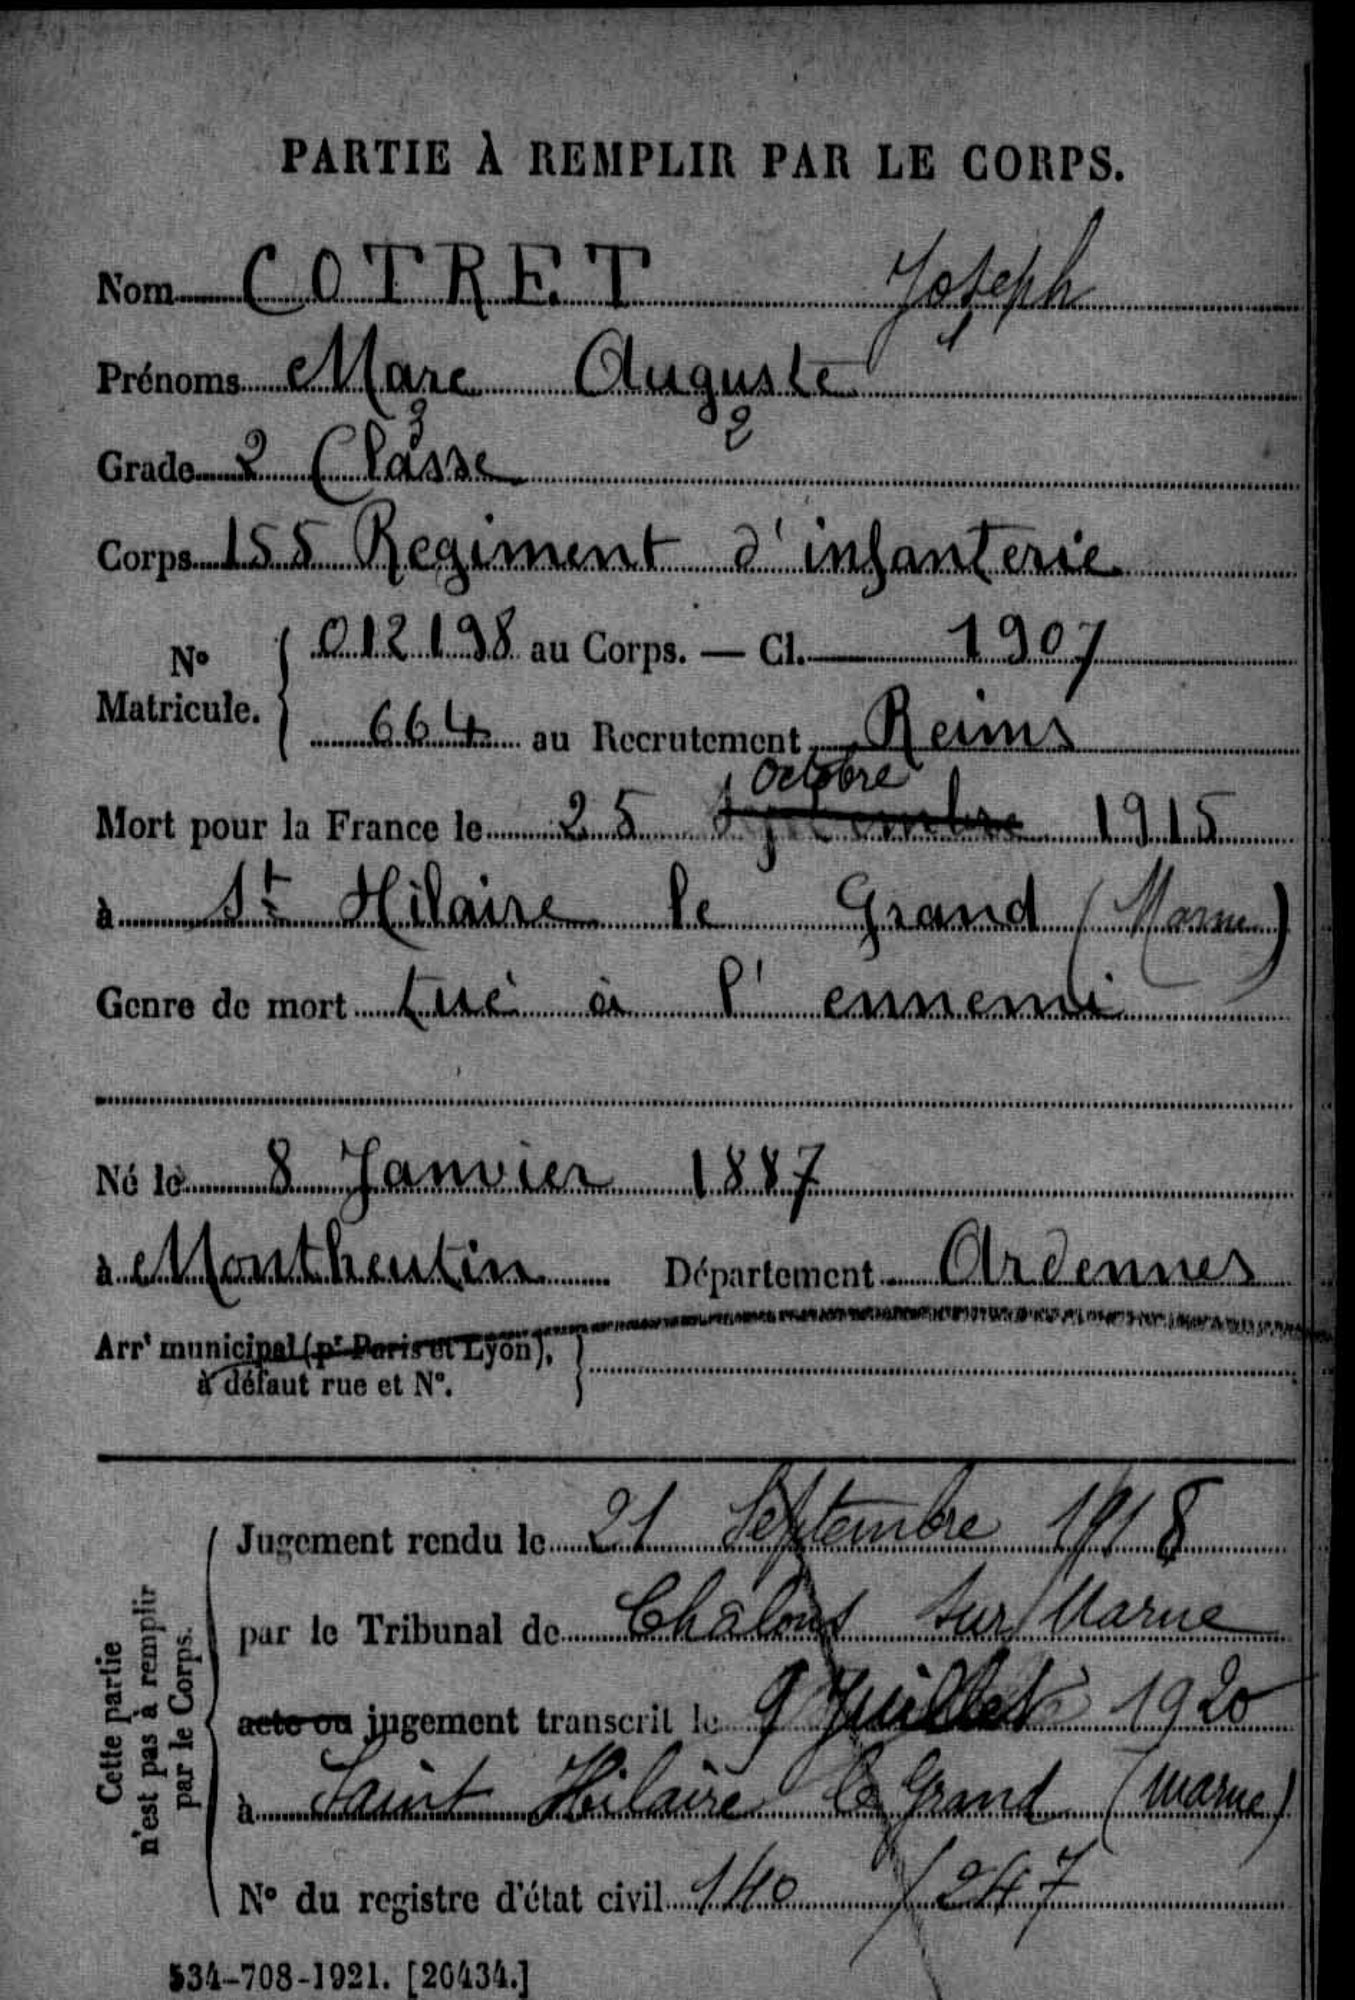 PARTIE À REMPLIR PAR LE CORPS.
Nom COTRET Joseph
1
Prénoms Marc Auguste
3 2
Grade 2 Classe
Corps 155 Regiment d'infanterie
N° Matricule. 012198 au Corps. — Cl. 1907
664 au Recrutement Reims
Octobre
Mort pour la France le 25 septembre 1915
à St Hilaire le Grand (Marne)
Genre de mort tué à l'ennemi
Né le 8 Janvier 1887
à Montheutin Département Ardennes
Arrt municipal (pr Paris et Lyon),
à défaut rue et N°.
Cette partie
n'est pas à remplir
par le Corps.
Jugement rendu le 21 Septembre 1918
par le Tribunal de Châlons sur Marne
acte ou jugement transcrit le 9 Juillet 1920
à Saint Hilaire le Grand (Marne)
N° du registre d'état civil 140 / 247
534-708-1921. [20434.]